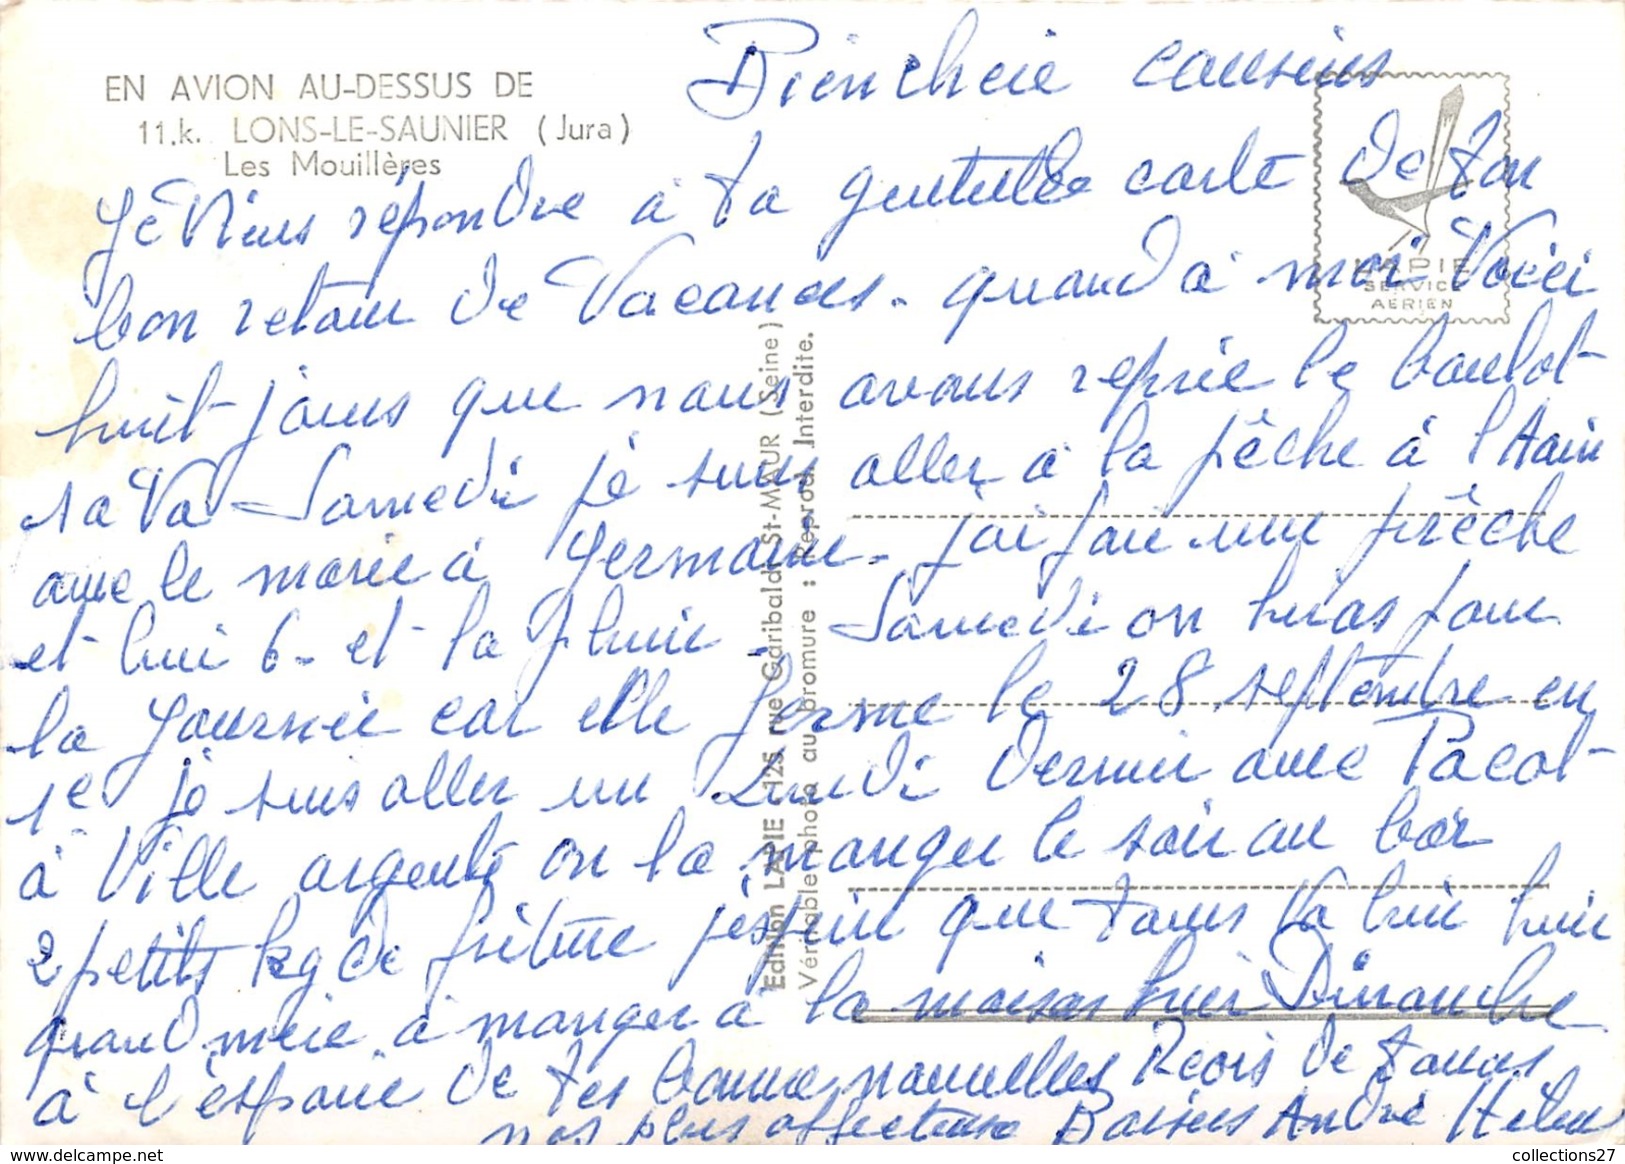 EN AVION AU-DESSUS DE
11.k. LONS-LE-SAUNIER (Jura)
Les Mouillères
LAPIE
SERVICE
AÉRIEN
Edition LAPIE 125, rue Garibaldi St-MAUR (Seine)
Véritable photo au bromure : Reprod. Interdite.
Bien cheie cousins
Je Viens répondre à ta gentille carte de ton
bon retour de Vacances. quand à moi Voici
huit jours que nous avons reprie le boulot
sa Va Samedi je suis aller à la pêche à l'Aain
avec le marie à Germaine. j'ai fais une prêche
et lui 6. et la pluie. Samedi on pour
la journée car elle ferme le 28 septembre en
1e je suis aller un Lundi dernier avec Pacot
à Ville argente on la manger le soir au bar
2 petits kg de friture j'espeir que tous va bien hier
grand meie à manger à la maison hier Dimanche
à l'espoir de tes bonne nouvelles Reçois de tous
nos plus affectueux Baisers André Helene
collections27